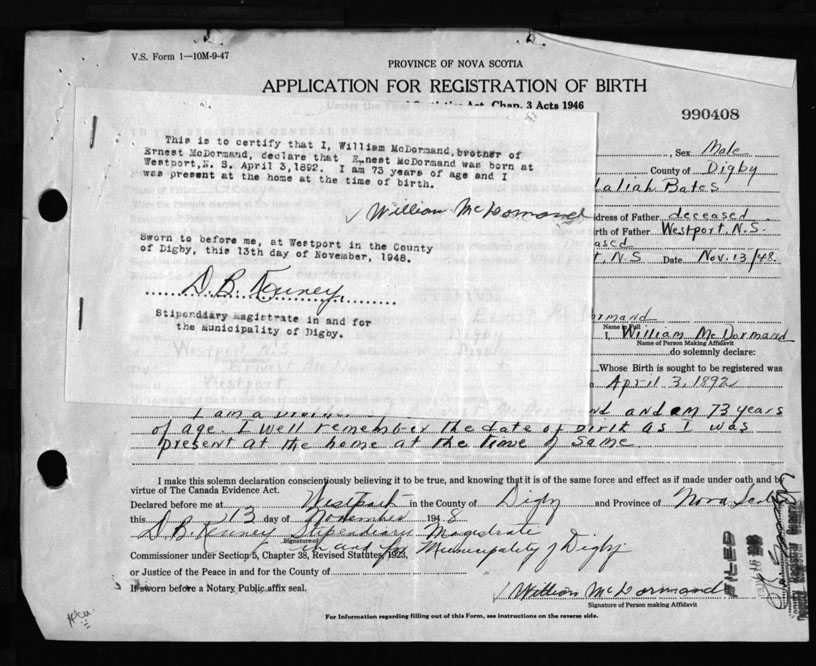 V.S. Form 1—10M-9-47
PROVINCE OF NOVA SCOTIA
APPLICATION FOR REGISTRATION OF BIRTH
Act, Chap. 3 Acts 1946
990408
This is to certify that I, William McDormand, brother of
Ernest McDormand, declare that Ernest McDormand was born at
Westport, N. S. April 3, 1892. I am 73 years of age and I
was present at the home at the time of birth.
William McDormand
Sworn to before me, at Westport in the County
of Digby, this 13th day of November, 1948.
D. B. Kenney
Stipendiary Magistrate in and for
the Municipality of Digby.
, Sex Male
County of Digby
aliah Bates
ddress of Father deceased
irth of Father Westport, N.S.
ased
t, N.S Date Nov. 13/48.
ormand
Name in Full
I, William McDormand
Name of Person Making Affidavit
do solemnly declare:
Whose Birth is sought to be registered was
April 3, 1892
I am a nd and am 73 years
of age. I well remember the date of birth as I was
present at the home at the time of same
I make this solemn declaration conscientiously believing it to be true, and knowing that it is of the same force and effect as if made under oath and by
virtue of The Canada Evidence Act.
Declared before me at Westport in the County of Digby and Province of Nova Scotia
this 13 day of November 1948
D. B. Kenney Stipendiary Magistrate
Signature of
in and for Municipality of Digby
Commissioner under Section 5, Chapter 38, Revised Statutes, 1923,
or Justice of the Peace in and for the County of
If sworn before a Notary Public affix seal.
William McDormand
Signature of Person making Affidavit
FILED
For information regarding filling out of this Form, see instructions on the reverse side.